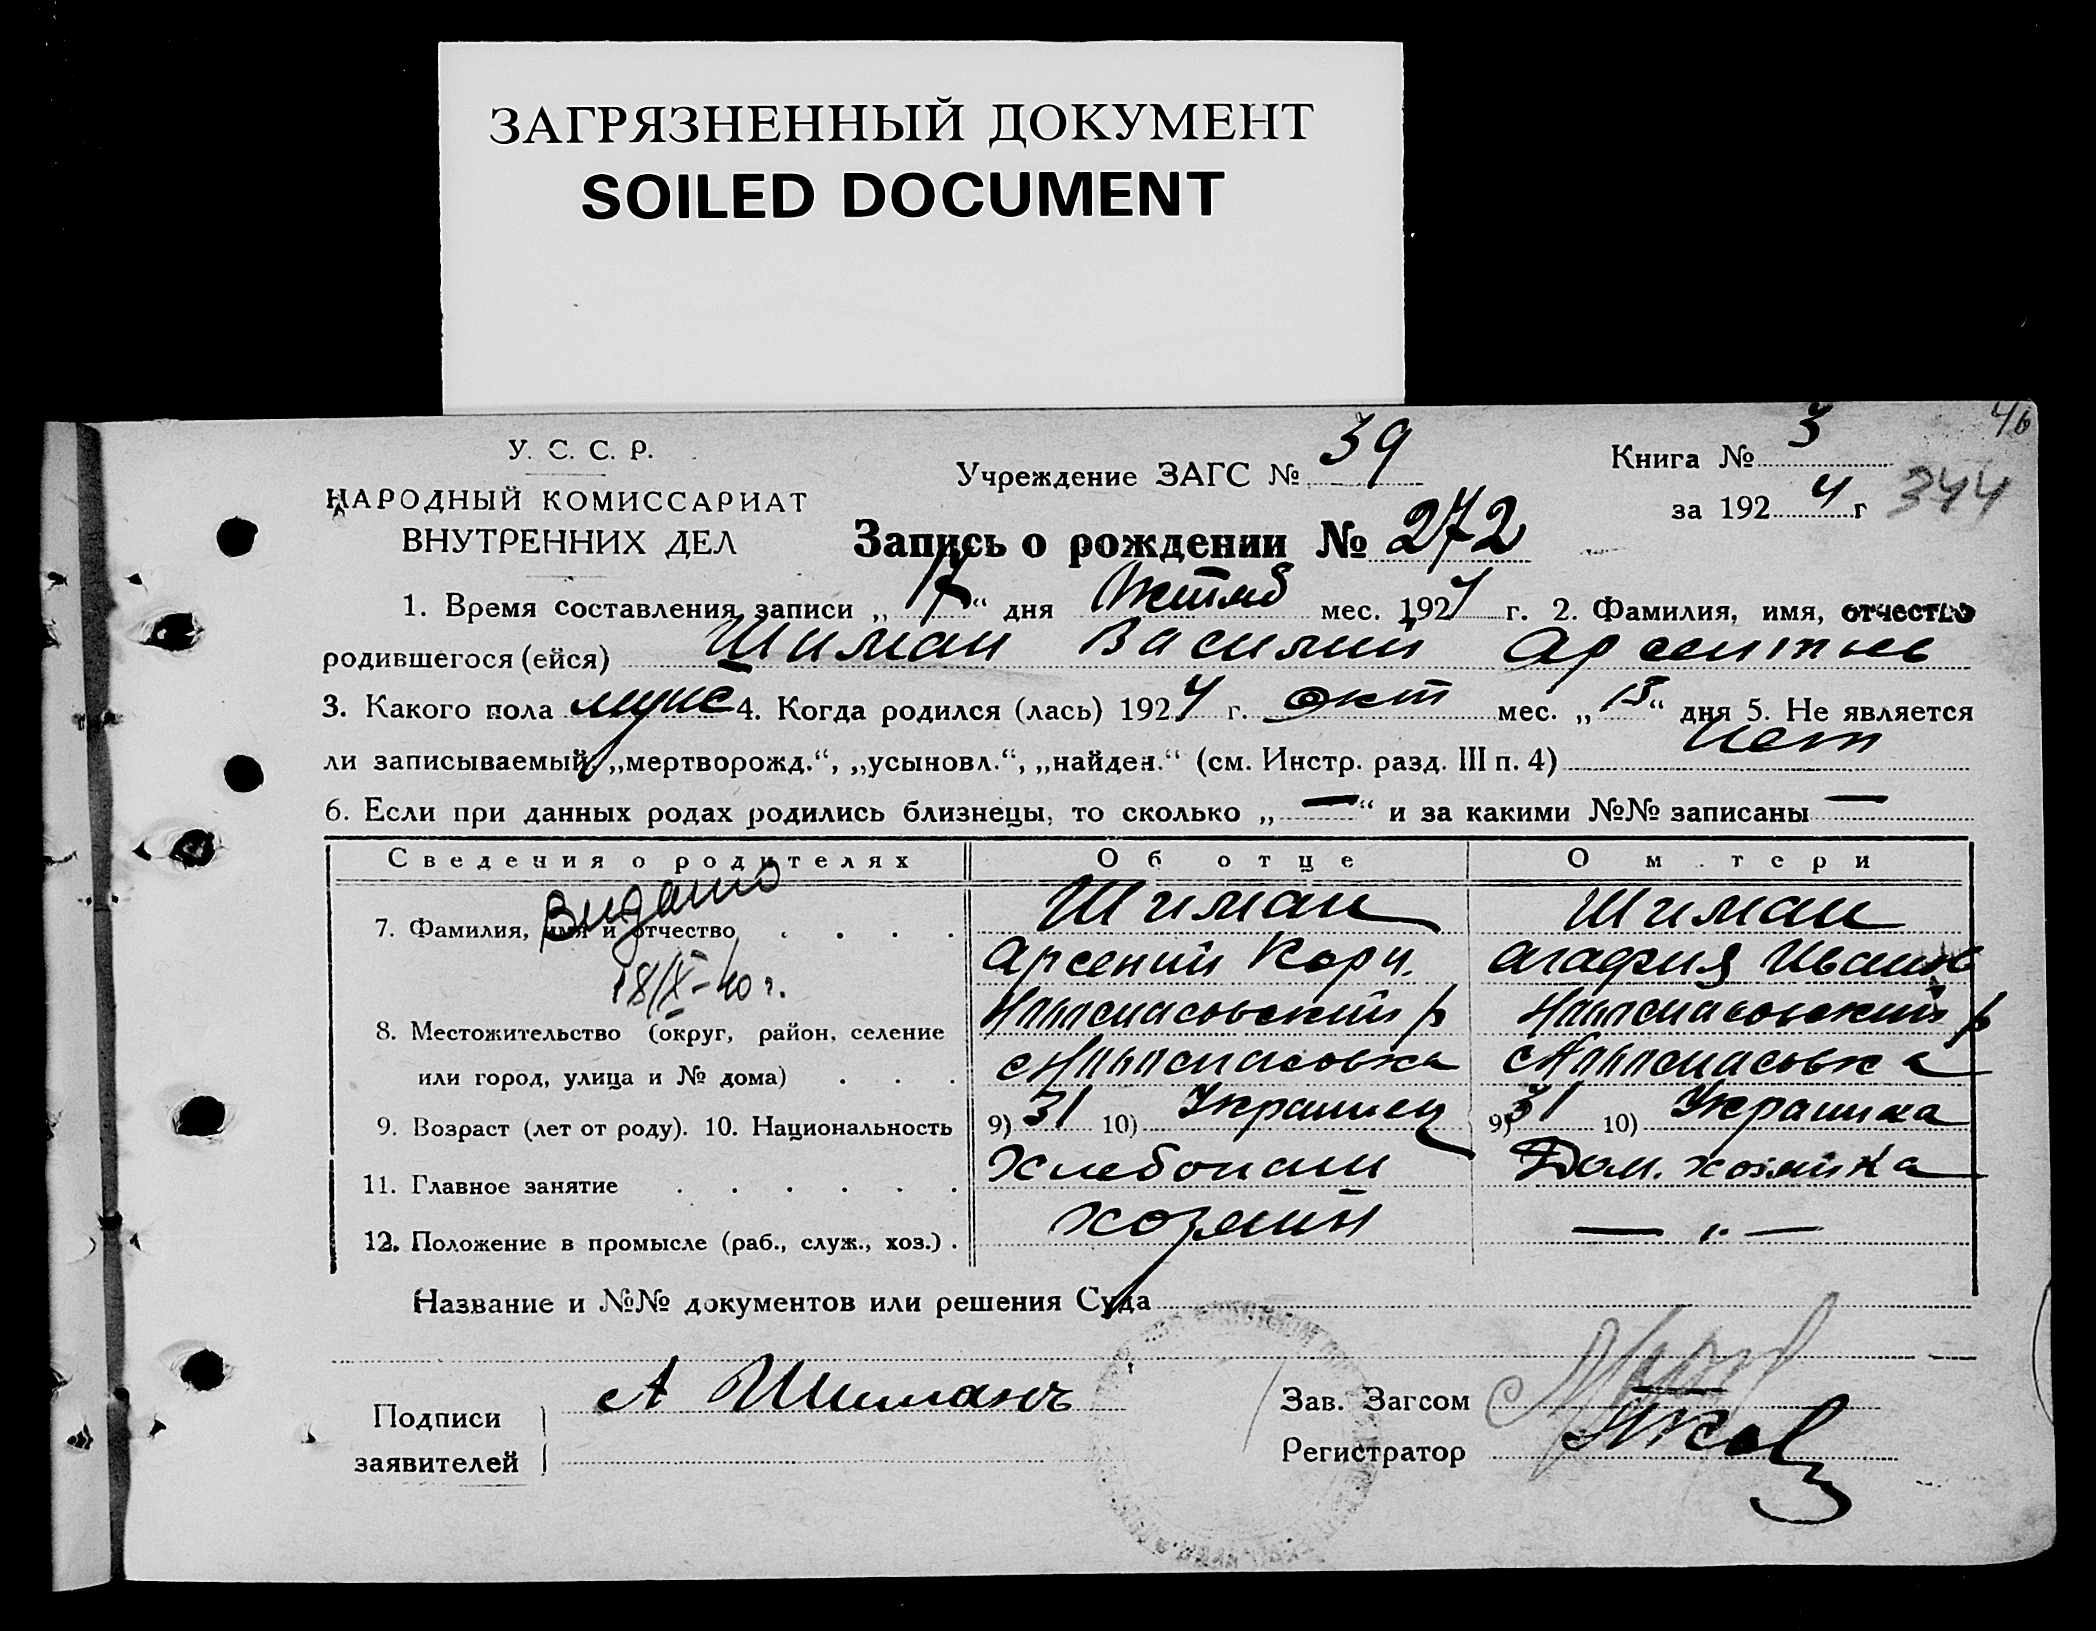 ЗАГРЯЗНЕННЫЙ ДОКУМЕНТ
SOILED DOCUMENT
46
У. С. С. Р.
НАРОДНЫЙ КОМИССАРИАТ
ВНУТРЕННИХ ДЕЛ
Учреждение ЗАГС № 39
Книга № 3
за 1924 г
344
Запись о рождении № 272
1. Время составления записи „17“ дня Октяб мес. 1924 г. 2. Фамилия, имя, отчество
родившегося (ейся) Шиман Василий Арсентьев
3. Какого пола муж 4. Когда родился (лась) 1924 г. окт мес. „15“ дня 5. Не является
ли записываемый „мертворожд.“, „усыновл.“, „найден.“ (см. Инстр. разд. III п. 4) нет
6. Если при данных родах родились близнецы, то сколько „—“ и за какими №№ записаны —
Сведения о родителях Об отце О м тери
7. Фамилия, имя и отчество Шиман Шиман
Видано Арсений Корн. Агафия Иван
18/IX-40 г.
8. Местожительство (округ, район, селение
или город, улица и № дома)
9. Возраст (лет от роду). 10. Национальность 9) 31 10) Украинец 9) 31 10) Украинка
11. Главное занятие Хлебопаш Дом. хозяйка
12. Положение в промысле (раб., служ., хоз.) хозяин — „ —
Название и №№ документов или решения Суда
Подписи заявителей А Шиманъ
Зав. Загсом
Регистратор